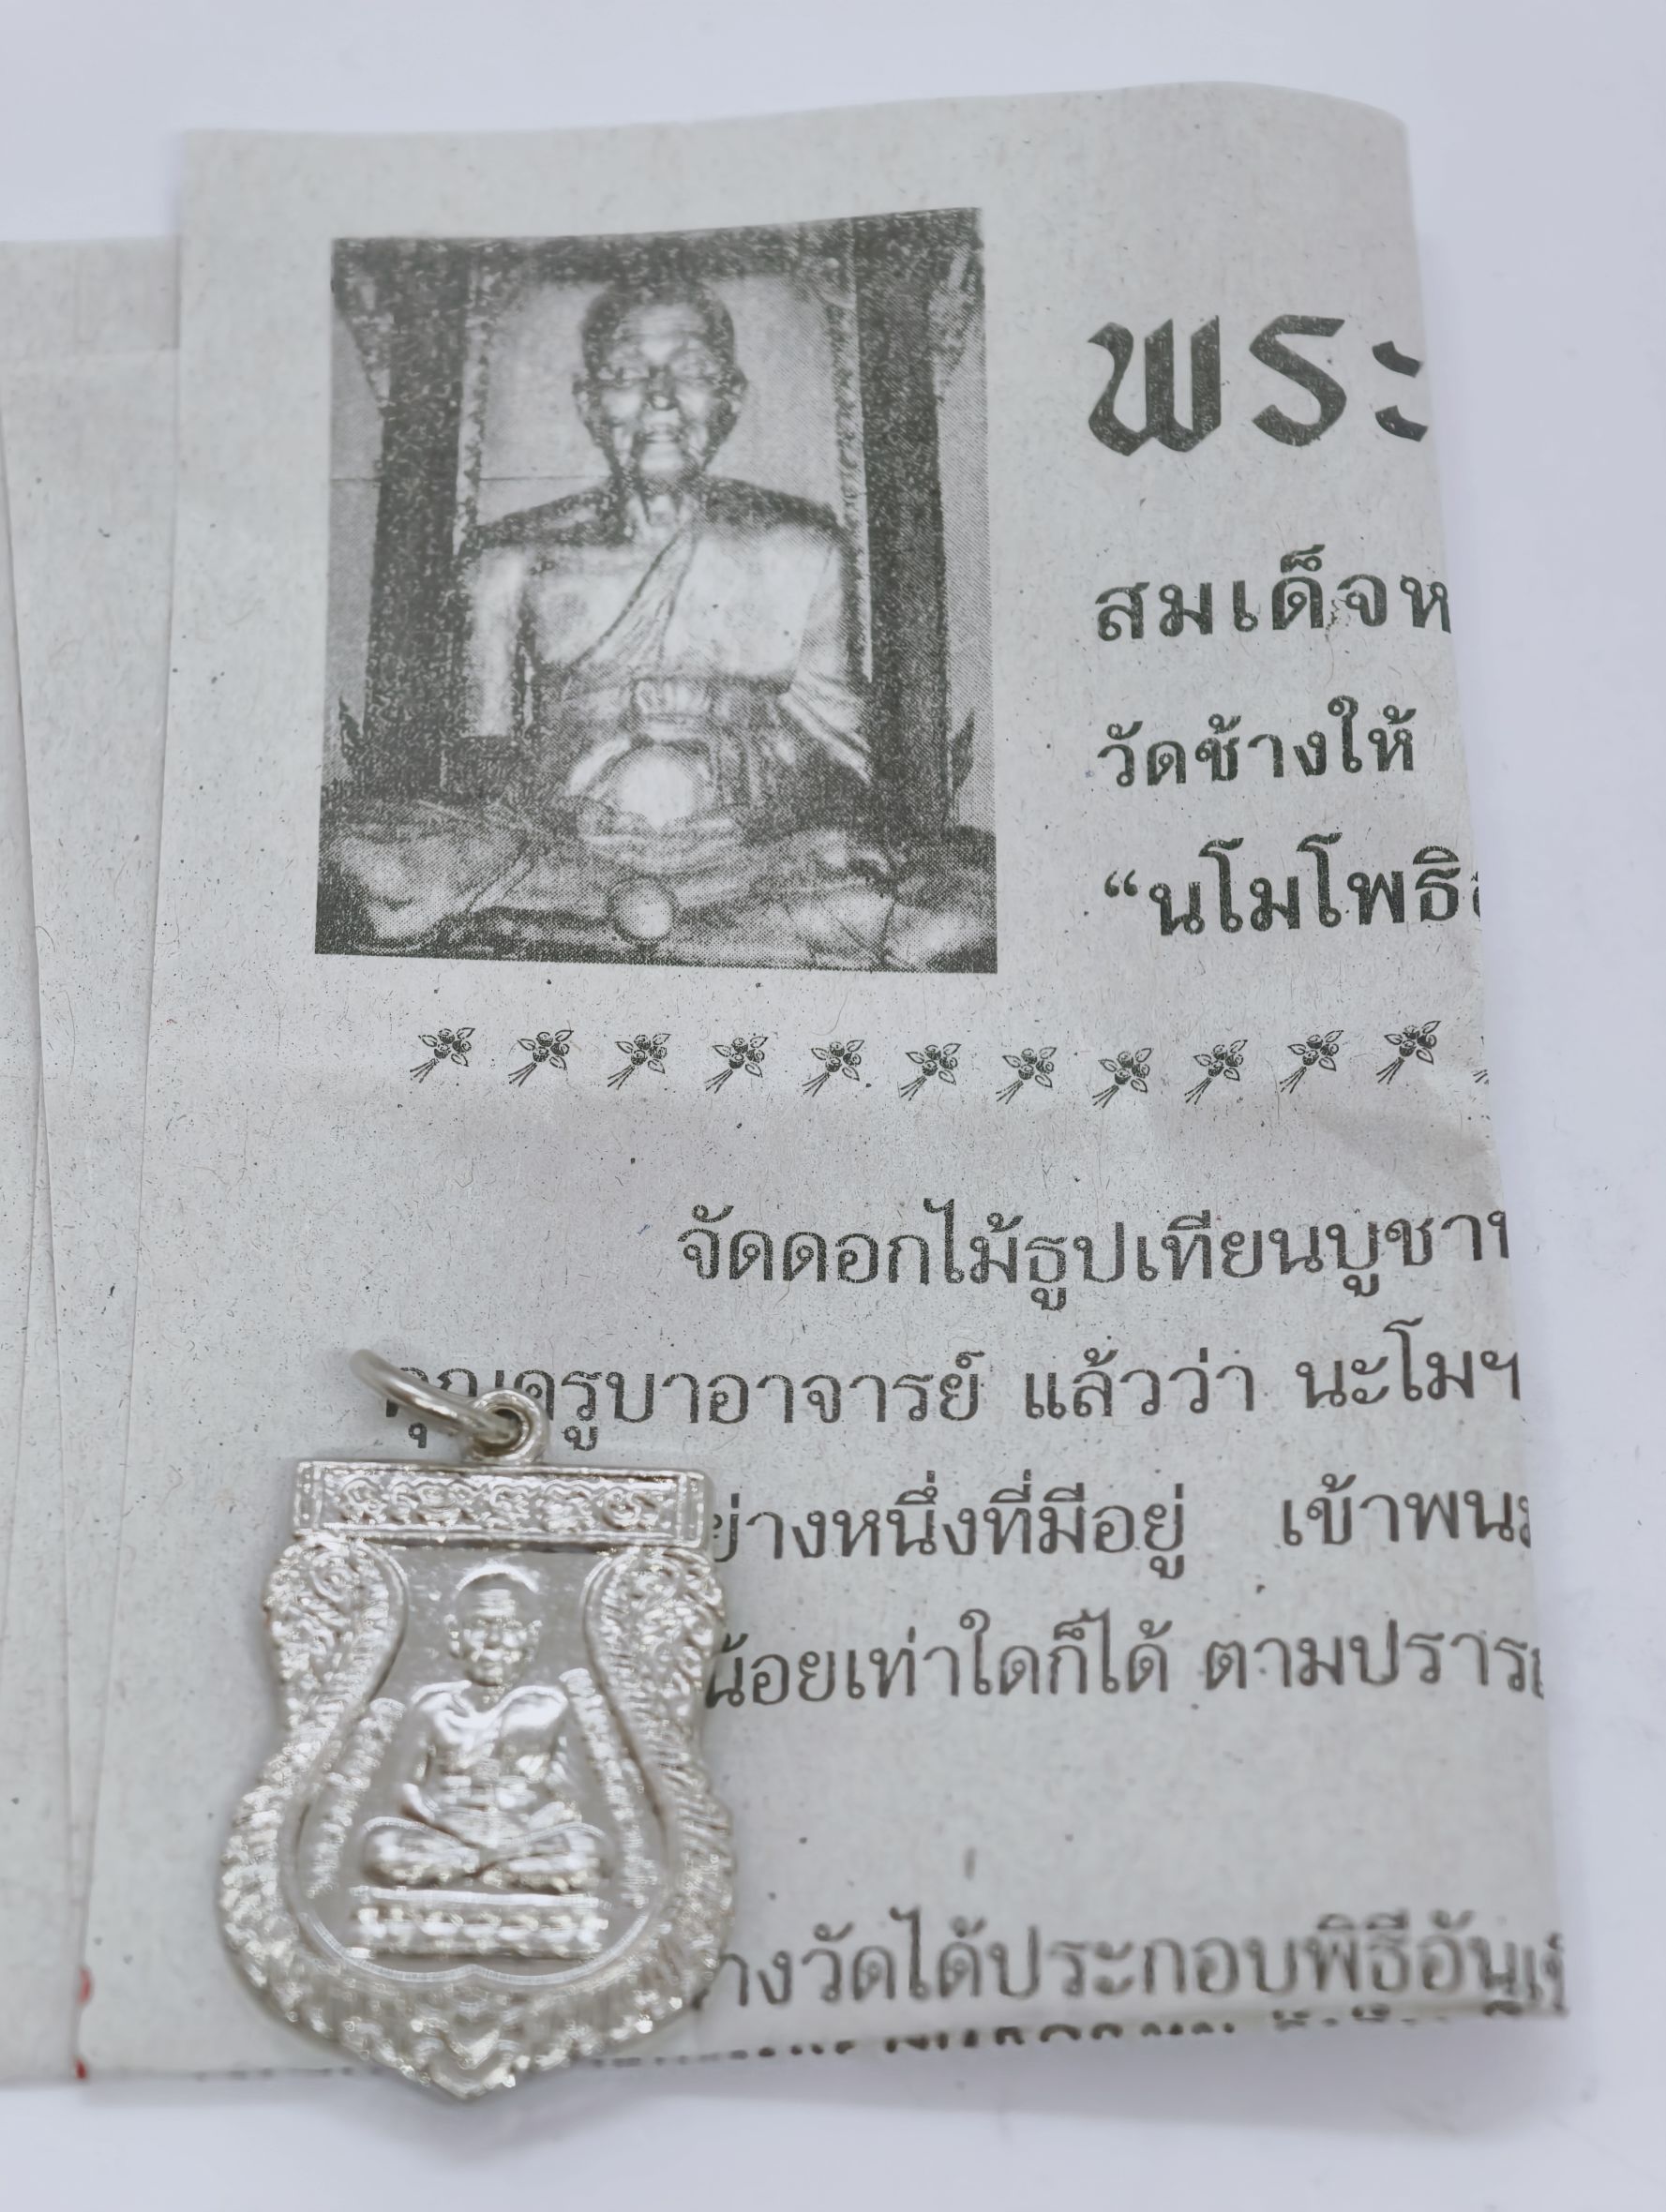 พระ
สมเด็จห
วัดช้างให้
“นโมโพธิ
จัดดอกไม้ธูปเทียนบูชา
คุณครูบาอาจารย์ แล้วว่า นะโมฯ
ย่างหนึ่งที่มีอยู่ เข้าพน
น้อยเท่าใดก็ได้ ตามปราร
างวัดได้ประกอบพิธีอัน